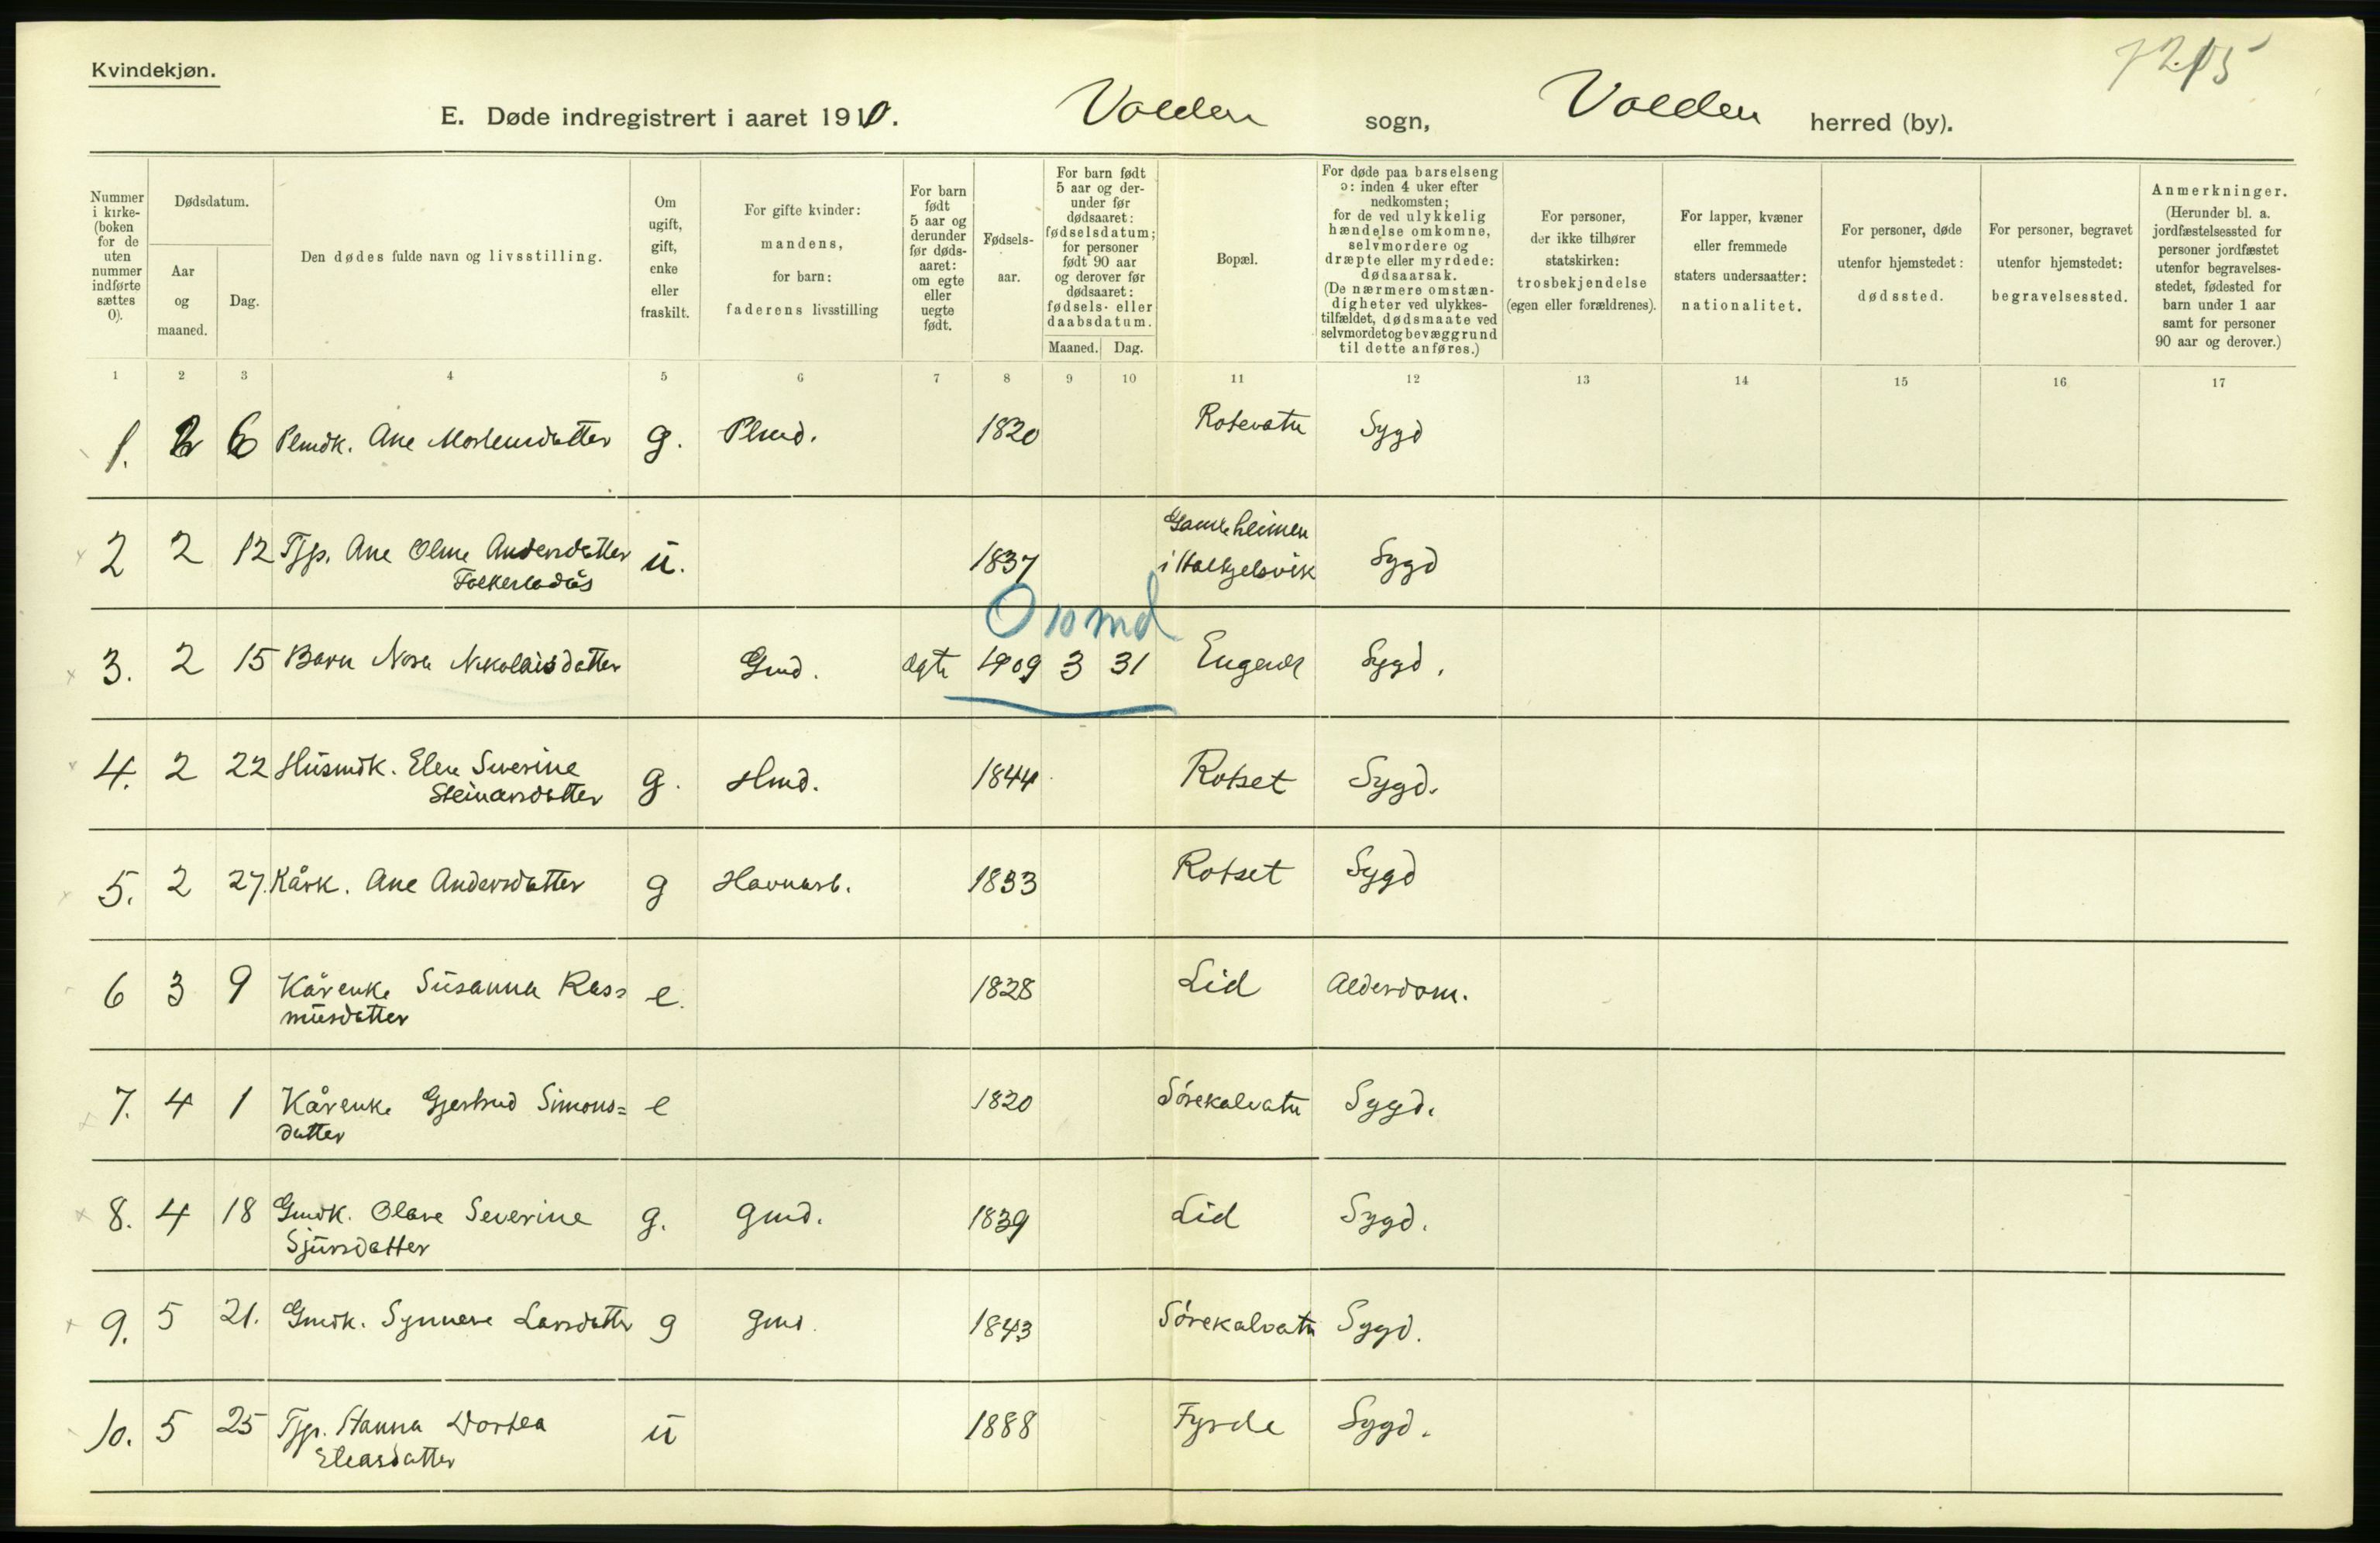 Kvindekjøn.
7215
E. Døde indregistrert i aaret 1910. Volden sogn, Volden herred (by).
Nummer i kirke- (boken for de uten nummer indførte sættes 0).
Dødsdatum.
Aar og maaned.
Dag.
Den dødes fulde navn og livsstilling.
Om ugift, gift, enke eller fraskilt.
For gifte kvinder: mandens, for barn: faderens livsstilling
For barn født 5 aar og derunder før dødsaaret: om egte eller uegte født.
Fødsels-aar.
For barn født 5 aar og der-under før dødsaaret: fødselsdatum; for personer født 90 aar og derover før dødsaaret: fødsels- eller daabsdatum.
Maaned. Dag.
Bopæl.
For døde paa barselseng ɔ: inden 4 uker efter nedkomsten; for de ved ulykkelig hændelse omkomne, selvmordere og dræpte eller myrdede: dødsaarsak. (De nærmere omstæn-digheter ved ulykkes-tilfældet, dødsmaate ved selvmordet og bevæggrund til dette anføres.)
For personer, der ikke tilhører statskirken: trosbekjendelse (egen eller forældrenes).
For lapper, kvæner eller fremmede staters undersaatter: nationalitet.
For personer, døde utenfor hjemstedet: dødssted.
For personer, begravet utenfor hjemstedet: begravelsessted.
Anmerkninger. (Herunder bl. a. jordfæstelsessted for personer jordfæstet utenfor begravelses-stedet, fødested for barn under 1 aar samt for personer 90 aar og derover.)
1 2 3 4 5 6 7 8 9 10 11 12 13 14 15 16 17
1. 2 6 Plmdk. Ane Mortensdatter g. Plmd. 1820 Rotevatn Sygd
2 2 12 Tjp. Ane Oline Andersdatter u. 1837 Gamleheimen i Halkjelsvik Sygd
0 10 md
3. 2 15 Barn Nora Nikolaisdatter Gmd. ægte 1909 3 31 Engeset Sygd.
4. 2 22 Husmdk. Elen Severine g. Hmd. 1844 Rotset Sygd.
Steinarsdatter
5. 2 27. Kårk. Ane Andersdatter g Havnarb. 1833 Rotset Sygd
6 3 9 Kårenke Susanna Ras= e. 1828 Lid Alderdom.
musdatter
7. 4 1 Kårenke Gjertrud Simons= e 1820 Sørekalvatn Sygd.
datter
8. 4 18 Gmdk. Olave Severine g. gmd. 1839 Lid Sygd.
Sjursdatter
9. 5 21. Gmdk. Synneve Larsdatter g gmd. 1843 Sørekalvatn Sygd.
10. 5 25 Tjp. Hanna Dortea u 1888 Fyrde Sygd.
Eleasdatter